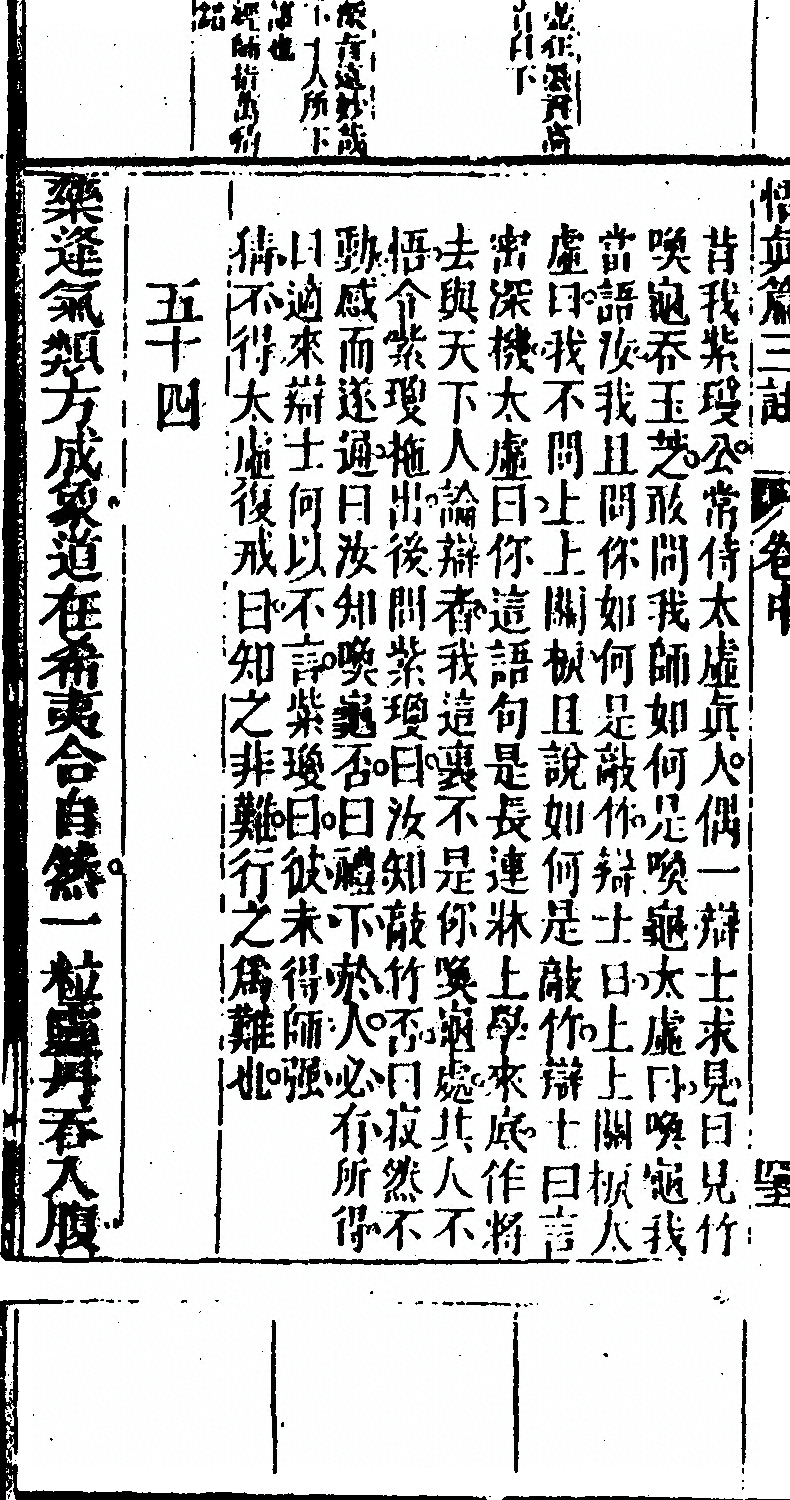 悟眞篇三註 卷中
昔我紫瓊公常侍太虛眞人偶一辯士求見曰見竹
喚龜吞玉芝敢問我師如何是喚龜太虛曰喚龜我
當語汝我且問你如何是敲竹辯士曰上上關棙太
虛曰我不問上上關棙且說如何是敲竹辯士曰言
密深機太虛曰你這語句是長連牀上學來底作將
去與天下人論辯看我這裏不是你喚龜處其人不
悟令紫瓊拖出後問紫瓊曰汝知敲竹否曰寂然不
動感而遂通曰汝知喚龜否曰禮下於人必有所得
曰適來辯士何以不言紫瓊曰彼未得師强
猜不得太虛復戒曰知之非難行之爲難也
五十四
藥逢氣類方成象道在希夷合自然一粒靈丹吞入腹